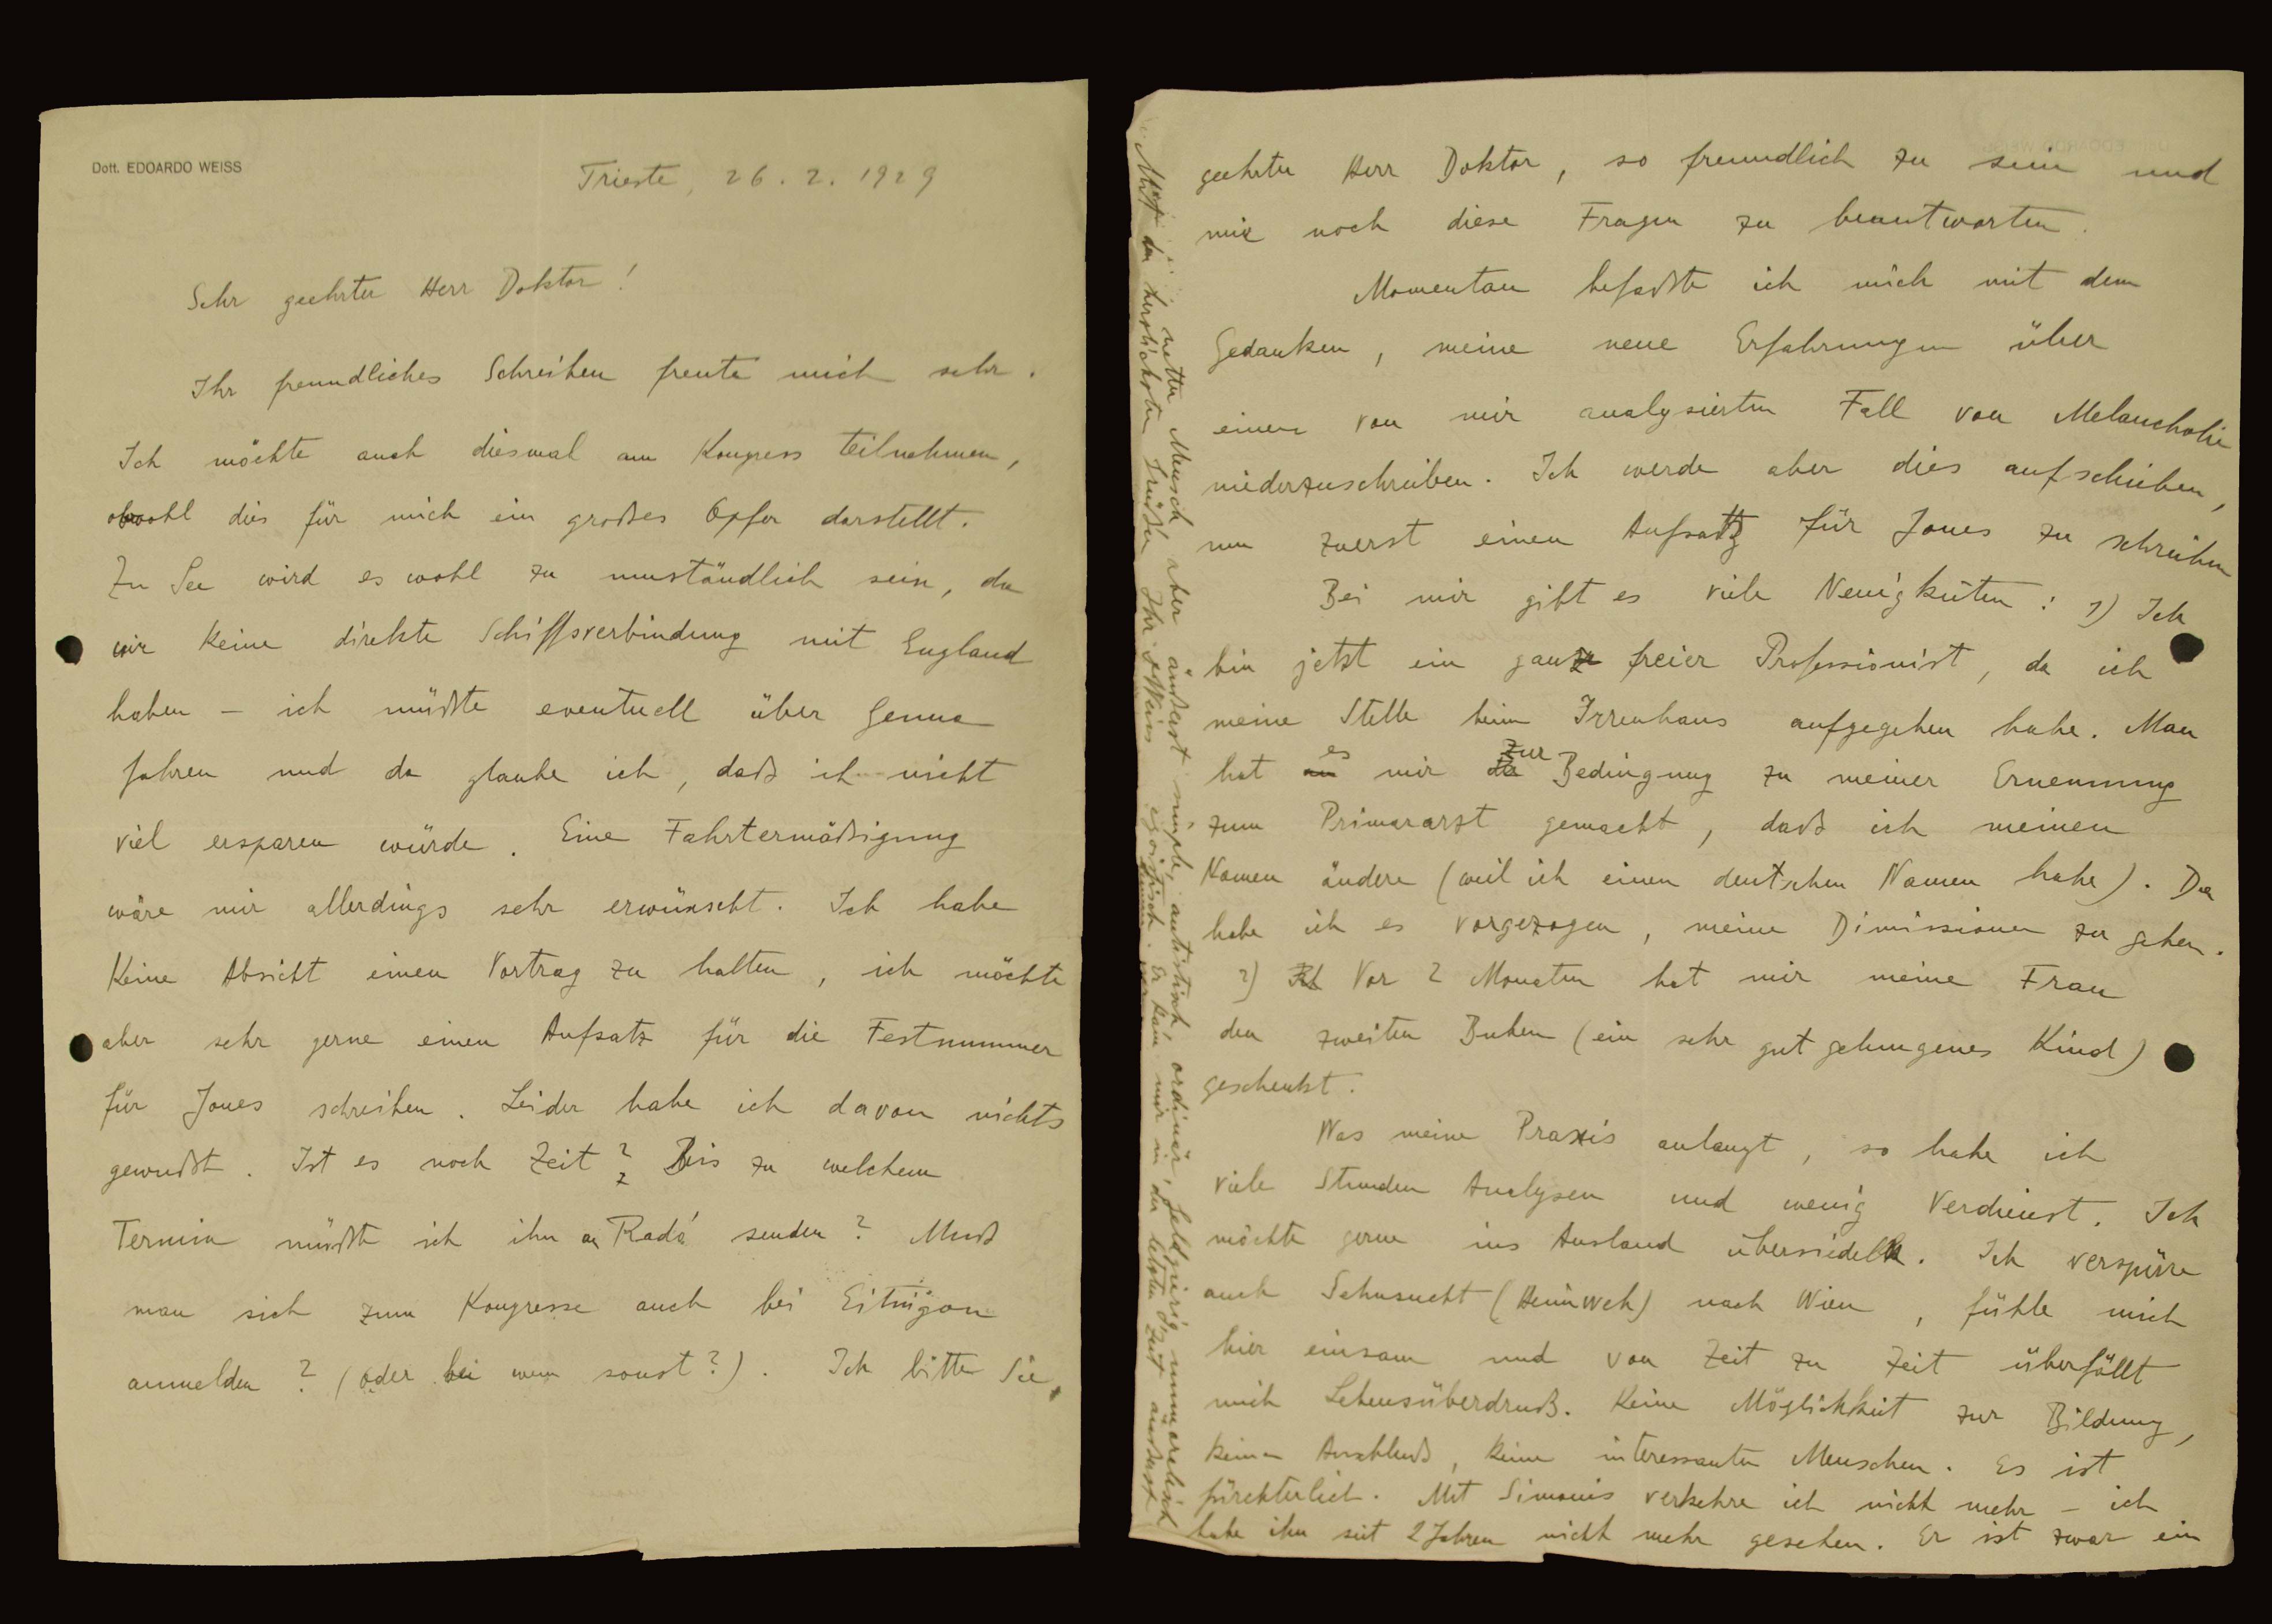 Dott. EDOARDO WEISS
Trieste, 26. 2. 1929
Sehr geehrter Herr Doktor!
Ihr freundliches Schreiben freute mich sehr.
Ich möchte auch diesmal am Kongress teilnehmen,
obwohl dies für mich ein großes Opfer darstellt.
Zu See wird es wohl zu umständlich sein, da
wir keine direkte Schiffsverbindung mit England
haben – ich müßte eventuell über Genua
fahren und da glaube ich, daß ich nicht
viel ersparen würde. Eine Fahrtermäßigung
wäre mir allerdings sehr erwünscht. Ich habe
keine Absicht einen Vortrag zu halten, ich möchte
aber sehr gerne einen Aufsatz für die Festnummer
für Jones schreiben. Leider habe ich davon nichts
gewußt. Ist es noch Zeit? Bis zu welchem
Termin müßte ich ihn an Radó senden? Muß
man sich zum Kongresse auch bei Eitingon
anmelden? (oder bei wem sonst?). Ich bitte Sie,
geehrter Herr Doktor, so freundlich zu sein und
mir noch diese Fragen zu beantworten.
Momentan befaßte ich mich mit dem
Gedanken, meine neue Erfahrungen über
einen von mir analysierten Fall von Melancholie
niederzuschreiben. Ich werde aber dies aufschieben,
um zuerst einen Aufsatz für Jones zu schreiben
Bei mir gibt es viele Neuigkeiten: 1) Ich
bin jetzt ein ganz freier Professionist, da ich
meine Stelle beim Irrenhaus aufgegeben habe. Man
hat es mir zur Bedingung zu meiner Ernennung
zum Primararzt gemacht, daß ich meinen
Namen ändere (weil ich einen deutschen Namen habe). Da
habe ich es vorgezogen, meine Dimissionen zu geben.
2) Vor 2 Monaten hat mir meine Frau
den zweiten Buben (ein sehr gut gelungenes Kind)
geschenkt.
Was meine Praxis anlangt, so habe ich
viele Stunden Analysen und wenig Verdienst. Ich
möchte gerne ins Ausland übersiedeln. Ich verspüre
auch Sehnsucht (Heimweh) nach Wien, fühle mich
hier einsam und von Zeit zu Zeit überfällt
mich Lebensüberdruß. Keine Möglichkeit zur Bildung,
keinen Anschluß, keine interessanten Menschen. Es ist
fürchterlich. Mit Simonis verkehre ich nicht mehr – ich
habe ihn seit 2 Jahren nicht mehr gesehen. Er ist zwar ein
netter Mensch aber äußerst simple, autistisch, ordinär, geldgierig, unmoralisch
egoistisch. Er kam mir in der letzten Zeit äußerst
Mit den herzlichsten Grüßen Ihr Weiss